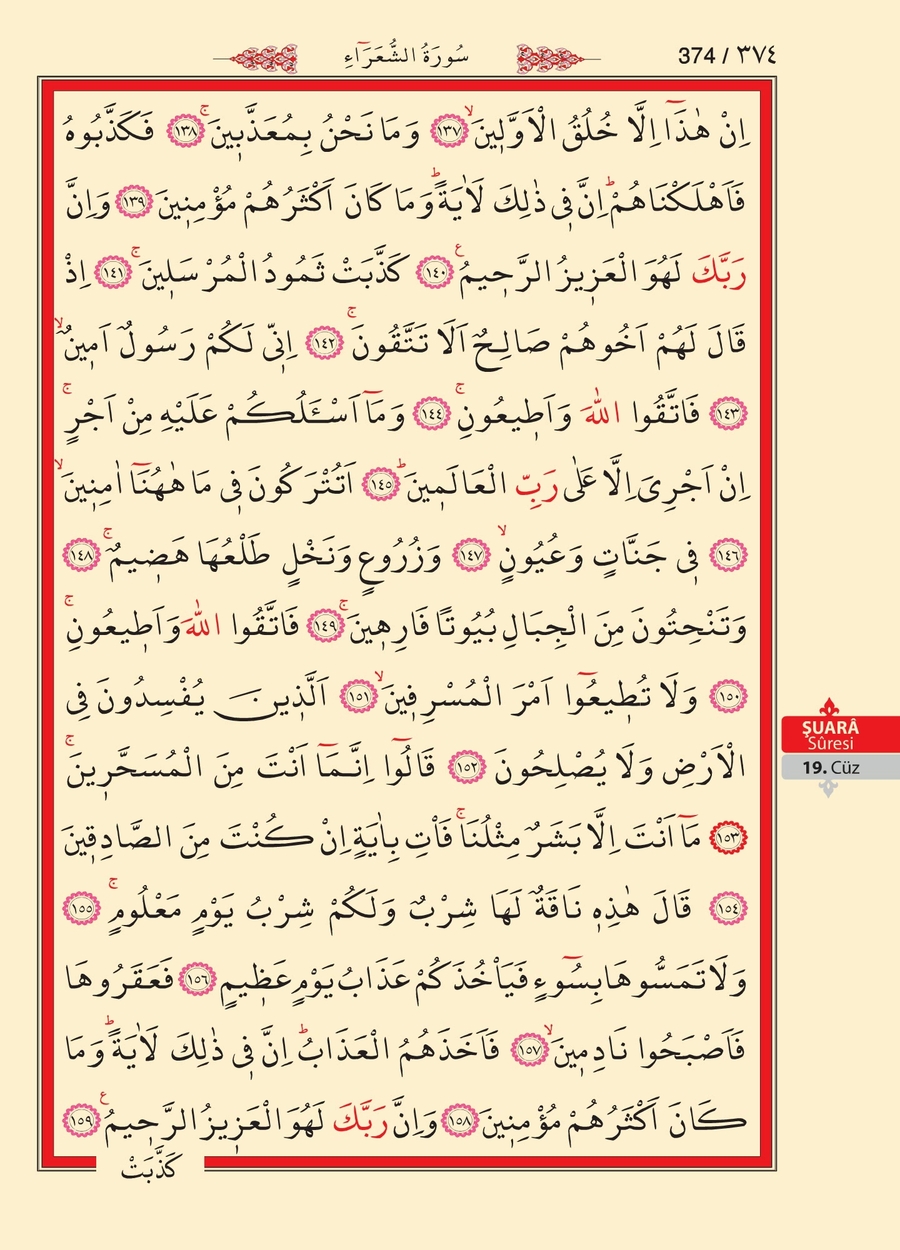 سُورَةُ الشُّعَرَٓاءِ
374 / ٣٧٤
اِنْ هٰذَٓا اِلَّا خُلُقُ الْاَوَّل۪ينَۙ ﴿١٣٧﴾ وَمَا نَحْنُ بِمُعَذَّب۪ينَۚ ﴿١٣٨﴾ فَكَذَّبُوهُ
فَاَهْلَكْنَاهُمْۜ اِنَّ ف۪ي ذٰلِكَ لَاٰيَةًۜ وَمَا كَانَ اَكْثَرُهُمْ مُؤْمِن۪ينَ ﴿١٣٩﴾ وَاِنَّ
رَبَّكَ لَهُوَ الْعَز۪يزُ الرَّح۪يمُ۟ ﴿١٤٠﴾ كَذَّبَتْ ثَمُودُ الْمُرْسَل۪ينَۚ ﴿١٤١﴾ اِذْ
قَالَ لَهُمْ اَخُوهُمْ صَالِحٌ اَلَا تَتَّقُونَۚ ﴿١٤٢﴾ اِنّ۪ي لَكُمْ رَسُولٌ اَم۪ينٌۙ
﴿١٤٣﴾ فَاتَّقُوا اللّٰهَ وَاَط۪يعُونِۚ ﴿١٤٤﴾ وَمَٓا اَسْـَٔلُكُمْ عَلَيْهِ مِنْ اَجْرٍۚ
اِنْ اَجْرِيَ اِلَّا عَلٰى رَبِّ الْعَالَم۪ينَۜ ﴿١٤٥﴾ اَتُتْرَكُونَ ف۪ي مَا هٰهُنَٓا اٰمِن۪ينَۙ
﴿١٤٦﴾ ف۪ي جَنَّاتٍ وَعُيُونٍۙ ﴿١٤٧﴾ وَزُرُوعٍ وَنَخْلٍ طَلْعُهَا هَض۪يمٌۚ ﴿١٤٨﴾
وَتَنْحِتُونَ مِنَ الْجِبَالِ بُيُوتًا فَارِه۪ينَۚ ﴿١٤٩﴾ فَاتَّقُوا اللّٰهَ وَاَط۪يعُونِۚ
﴿١٥٠﴾ وَلَا تُط۪يعُٓوا اَمْرَ الْمُسْرِف۪ينَۙ ﴿١٥١﴾ اَلَّذ۪ينَ يُفْسِدُونَ فِي
الْاَرْضِ وَلَا يُصْلِحُونَ ﴿١٥٢﴾ قَالُٓوا اِنَّمَٓا اَنْتَ مِنَ الْمُسَحَّر۪ينَۚ
﴿١٥٣﴾ مَٓا اَنْتَ اِلَّا بَشَرٌ مِثْلُنَاۚ فَأْتِ بِاٰيَةٍ اِنْ كُنْتَ مِنَ الصَّادِق۪ينَ
﴿١٥٤﴾ قَالَ هٰذِه۪ نَاقَةٌ لَهَا شِرْبٌ وَلَكُمْ شِرْبُ يَوْمٍ مَعْلُومٍۚ ﴿١٥٥﴾
وَلَا تَمَسُّوهَا بِسُٓوءٍ فَيَأْخُذَكُمْ عَذَابُ يَوْمٍ عَظ۪يمٍ ﴿١٥٦﴾ فَعَقَرُوهَا
فَاَصْبَحُوا نَادِم۪ينَۙ ﴿١٥٧﴾ فَاَخَذَهُمُ الْعَذَابُۜ اِنَّ ف۪ي ذٰلِكَ لَاٰيَةًۜ وَمَا
كَانَ اَكْثَرُهُمْ مُؤْمِن۪ينَ ﴿١٥٨﴾ وَاِنَّ رَبَّكَ لَهُوَ الْعَز۪يزُ الرَّح۪يمُ۟ ﴿١٥٩﴾
كَذَّبَتْ
ŞUARÂ
Sûresi
19. Cüz